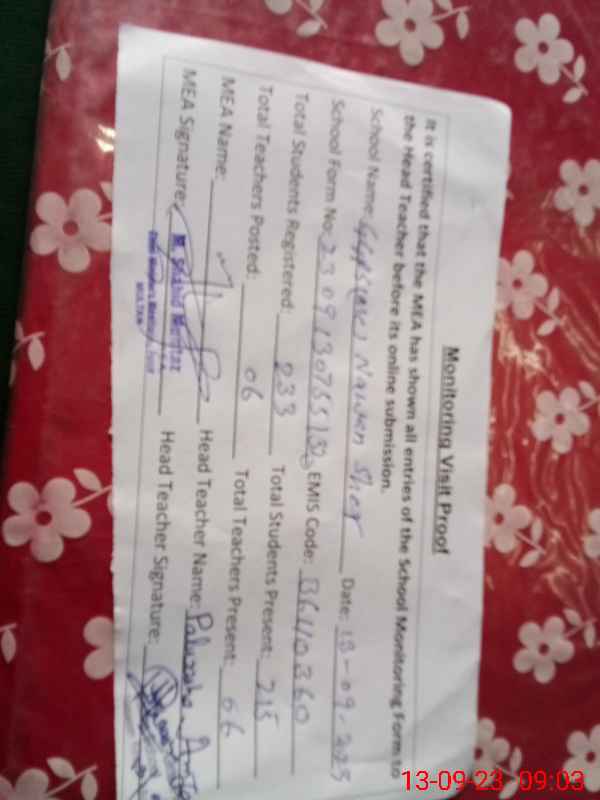 Monitoring Visit Proof
It is certified that the MEA has shown all entries of the School Monitoring Form to
the Head Teacher before its online submission.
School Name: Date: 13-09-2023
School Form No: EMIS Code: 36110360
Total Students Registered: 233 Total Students Present: 215
Total Teachers Posted: 06 Total Teachers Present: 06
MEA Name: Head Teacher Name:
MEA Signature: Head Teacher Signature:
M. Shahid Mumtaz
MULTAN
13-09-23 09:03